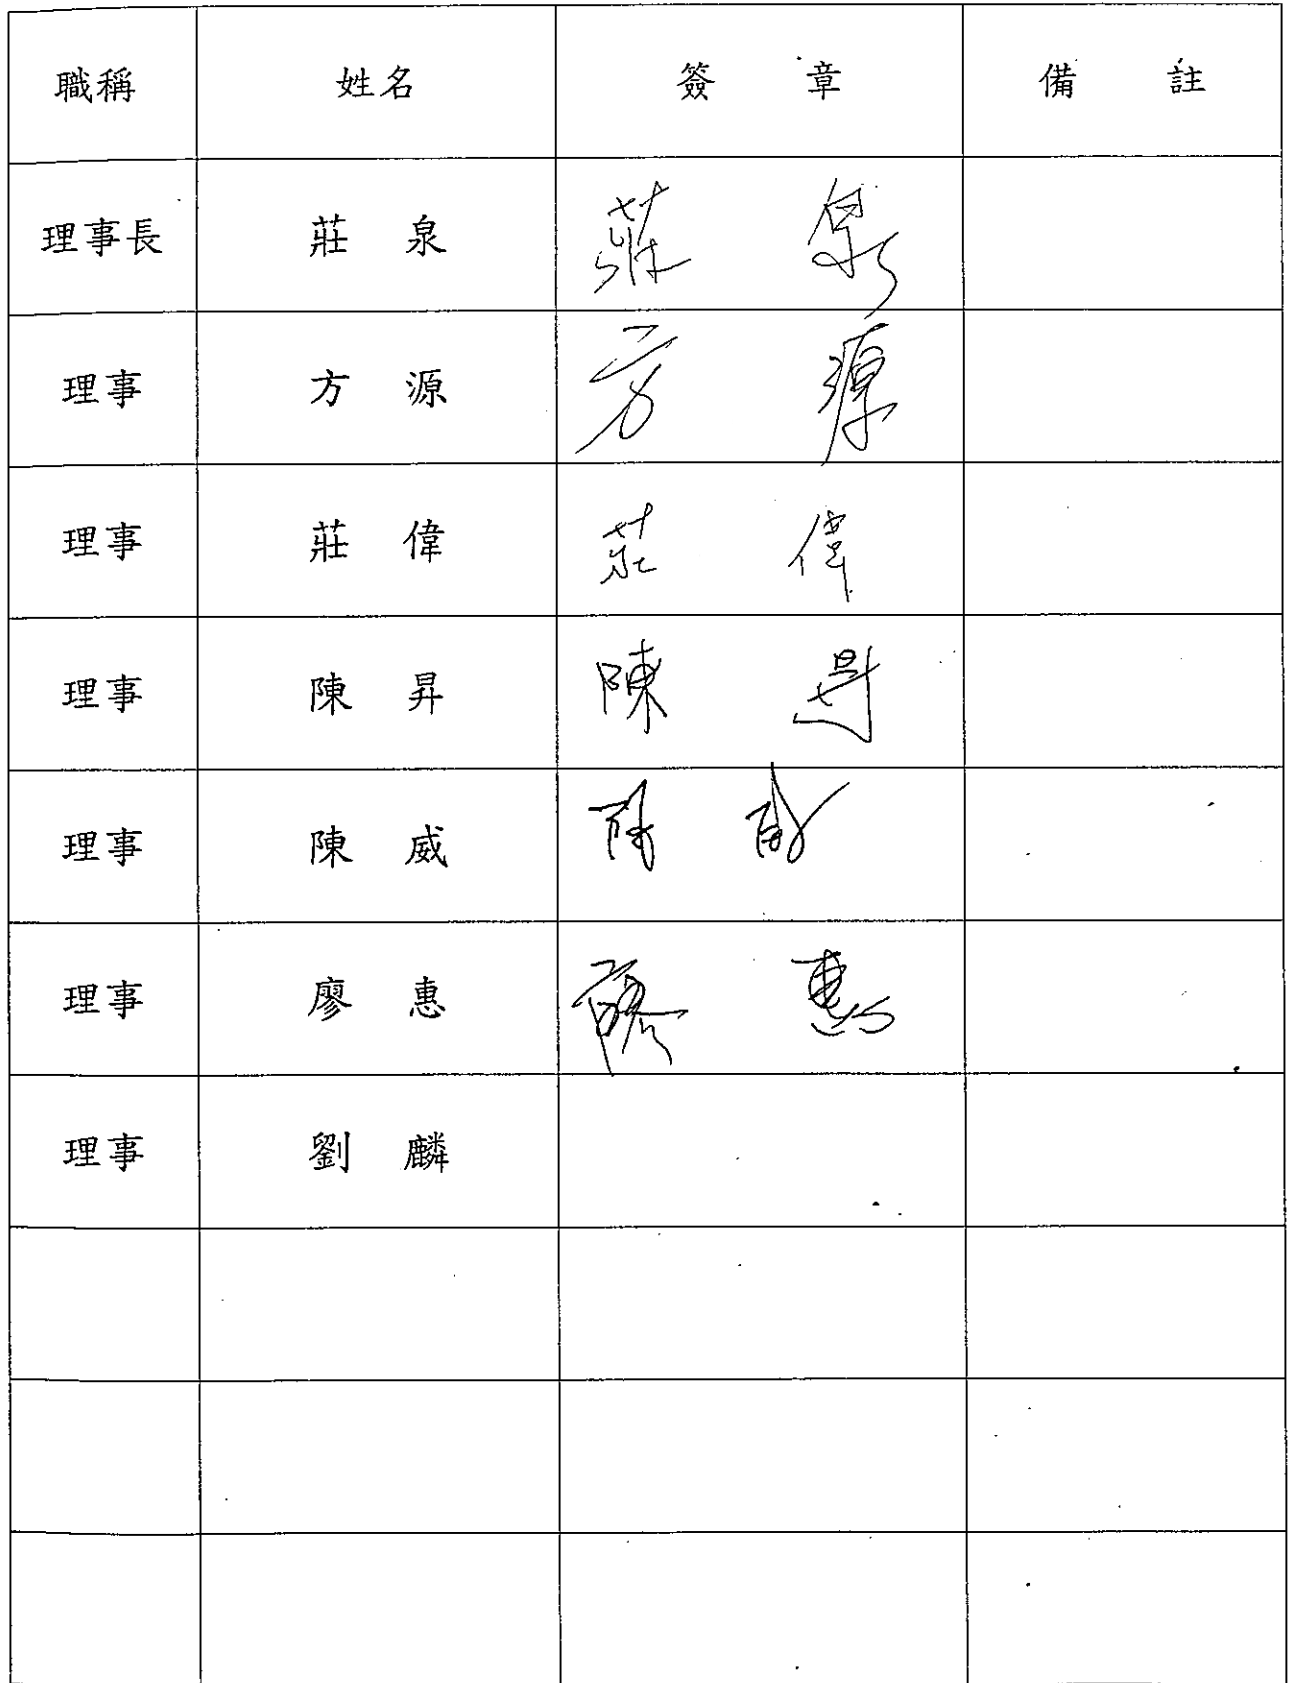 職稱 姓名 簽 章 備 註
理事長 莊 泉 莊 泉
理事 方 源 方 源
理事 莊 偉 莊 偉
理事 陳 昇 陳 昇
理事 陳 威 陳
理事 廖 惠 廖 惠
理事 劉 麟